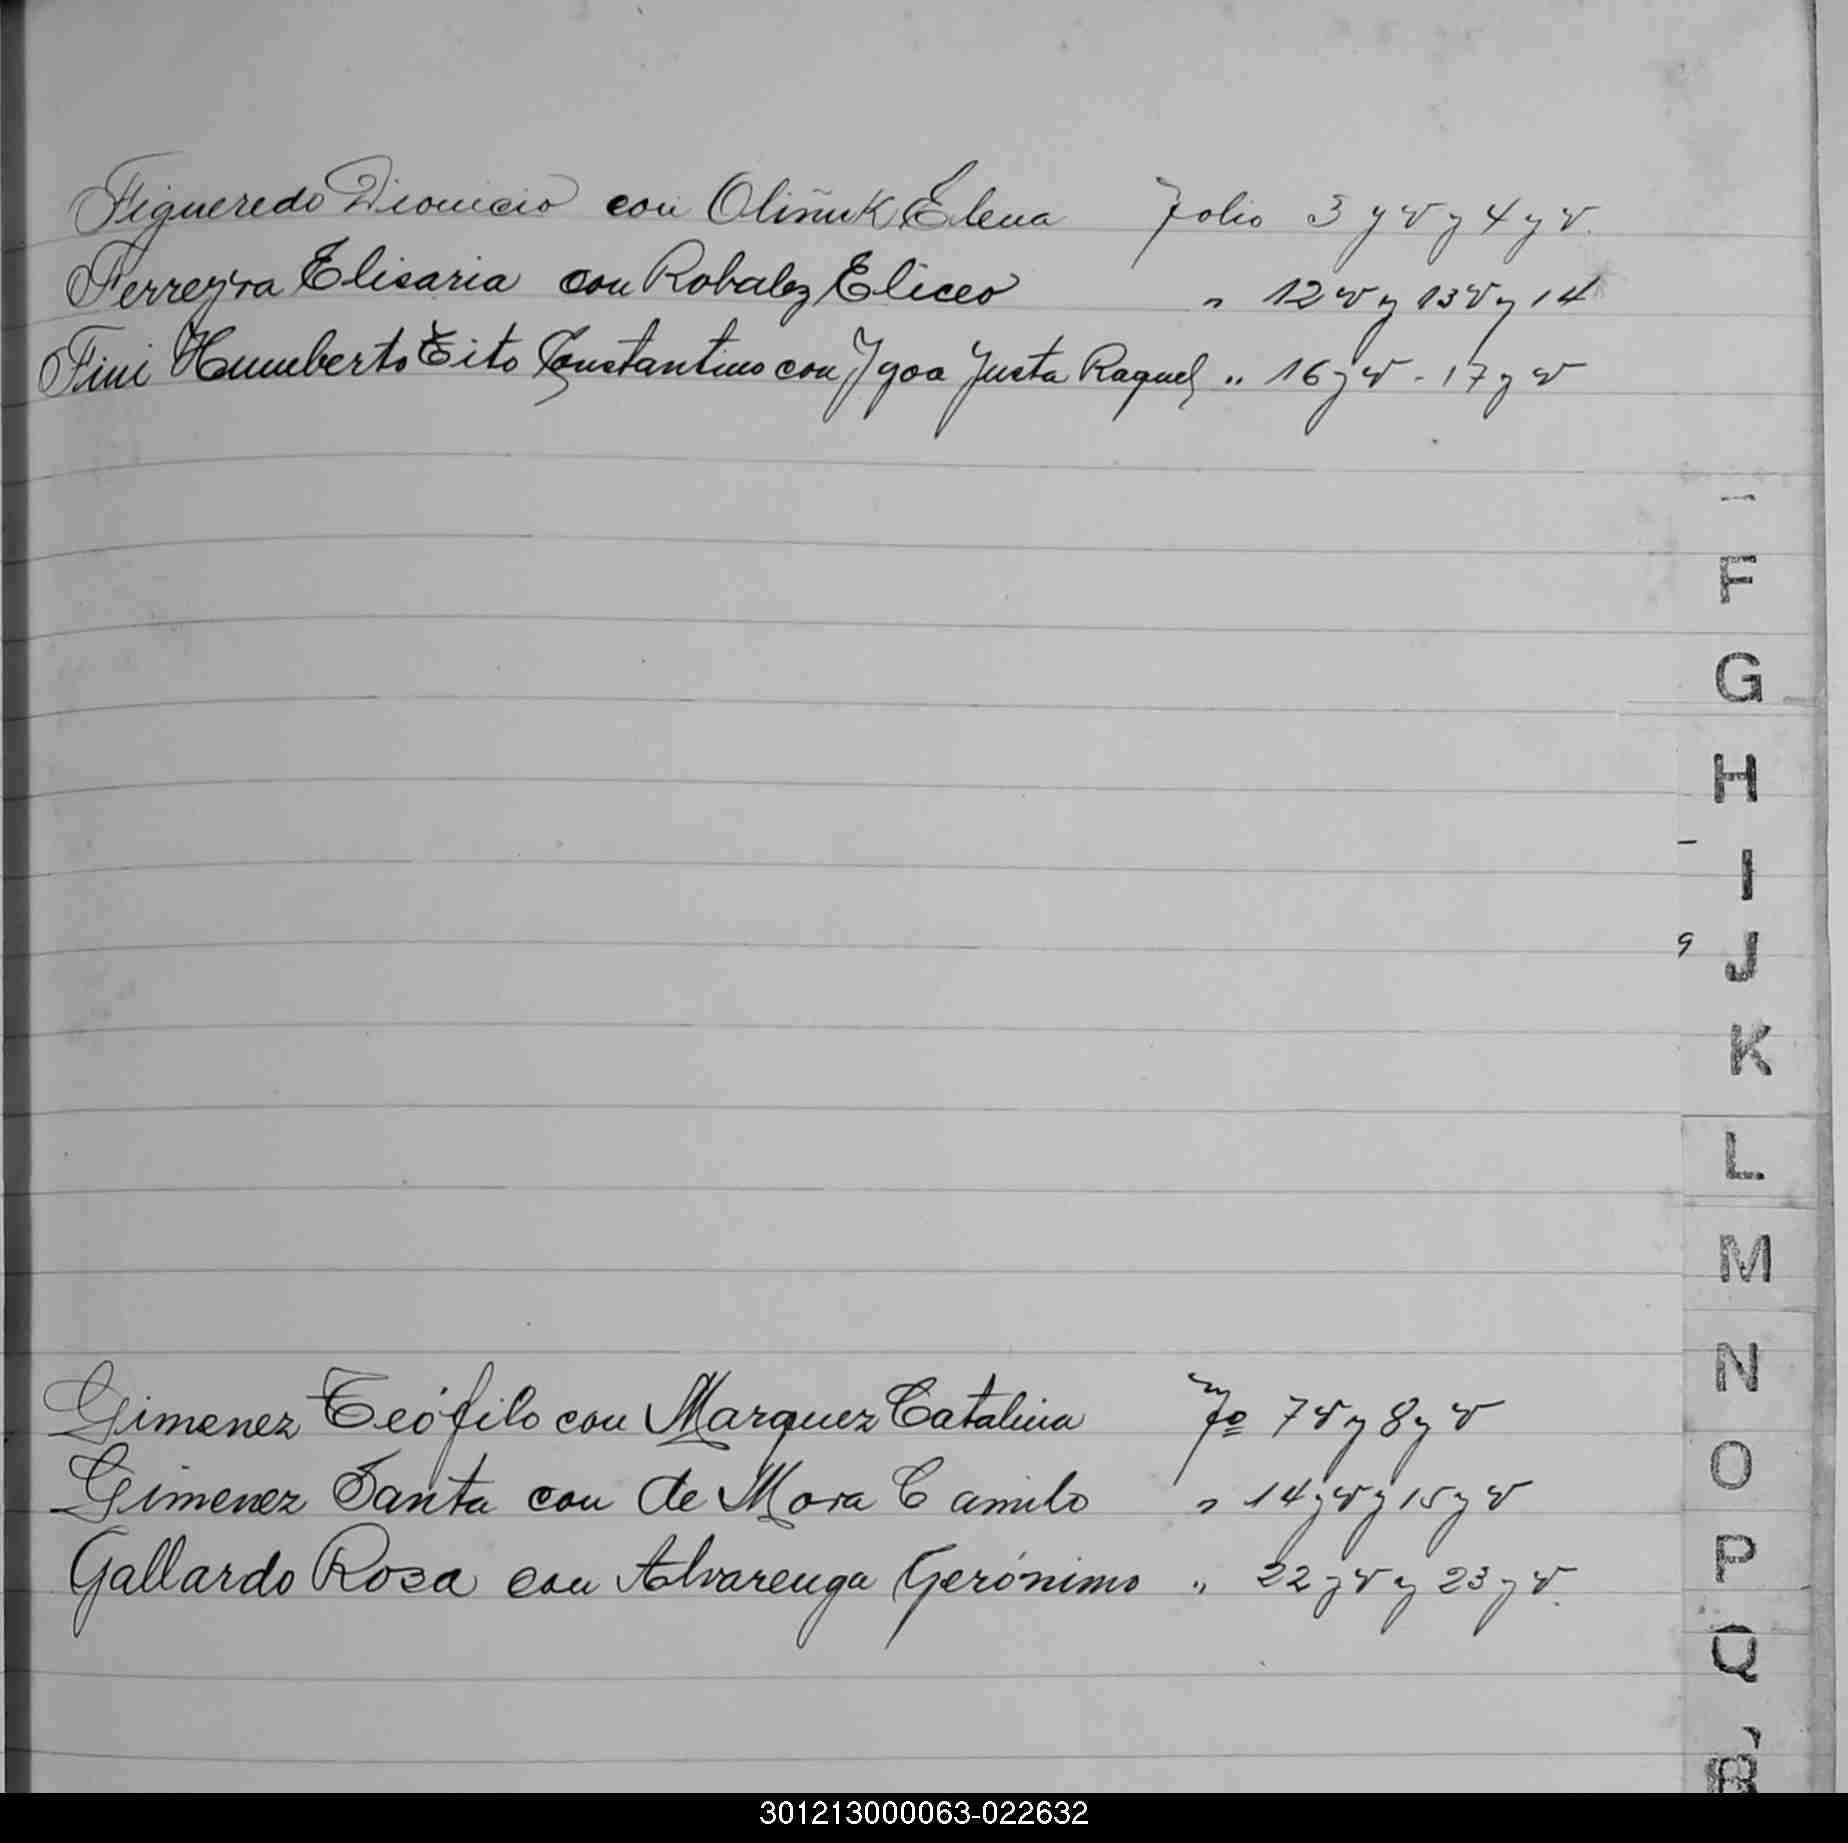 Figueredo Dionicio con Oliñuk Elena folio 3 y v y 4 y v.
Ferreyra Elisaria con Robalez Eliceo " 12 v y 13 v y 14
Fini Humberto Tito Constantino con Ygoa Justa Raquel " 16 y v - 17 y v
F
G
H
I
9 J
K
L
M
N
Gimenez Teófilo con Marquez Catalina fo 7 v y 8 y v
O
Gimenez Santa con de Mora Camilo " 14 y v y 15 y v
P
Gallardo Rosa con Alvarenga Gerónimo " 22 y v y 23 y v.
Q
R
301213000063-022632